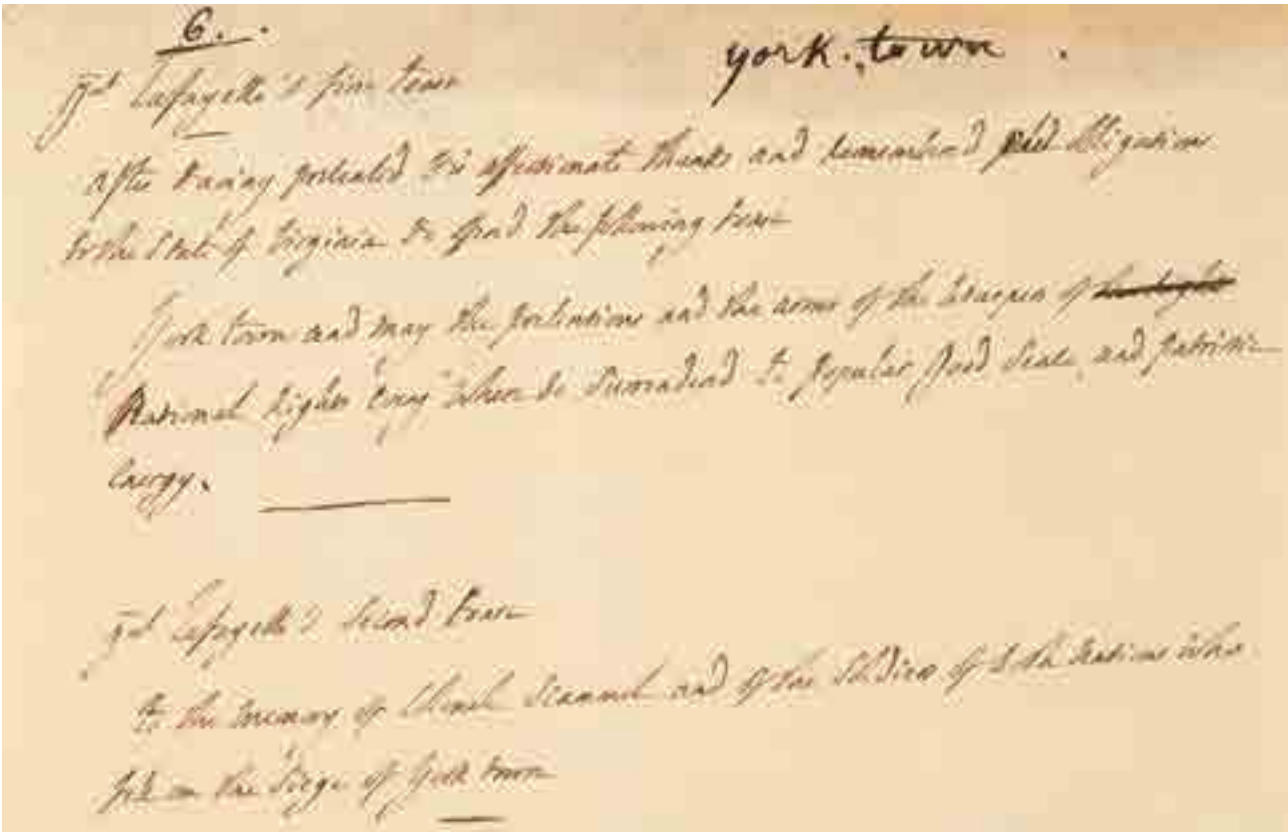 6.
york.town.
gal Lafayette's first toast
after having presented his affectionate thanks and remembered obligations
to the State of Virginia he offered the following toast
York town and may the and the arms of the of
National rights every where be surrendered to popular good Sense, and patriotic
Energy.
gal Lafayette's Second toast
to the memory of Colonel Scammel and of the Soldiers of both Nations who
in the Siege of York town